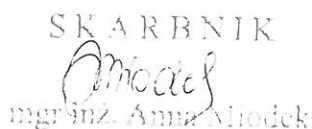 SKARBNIK
Miodek
mgr inż. Anna Miodek